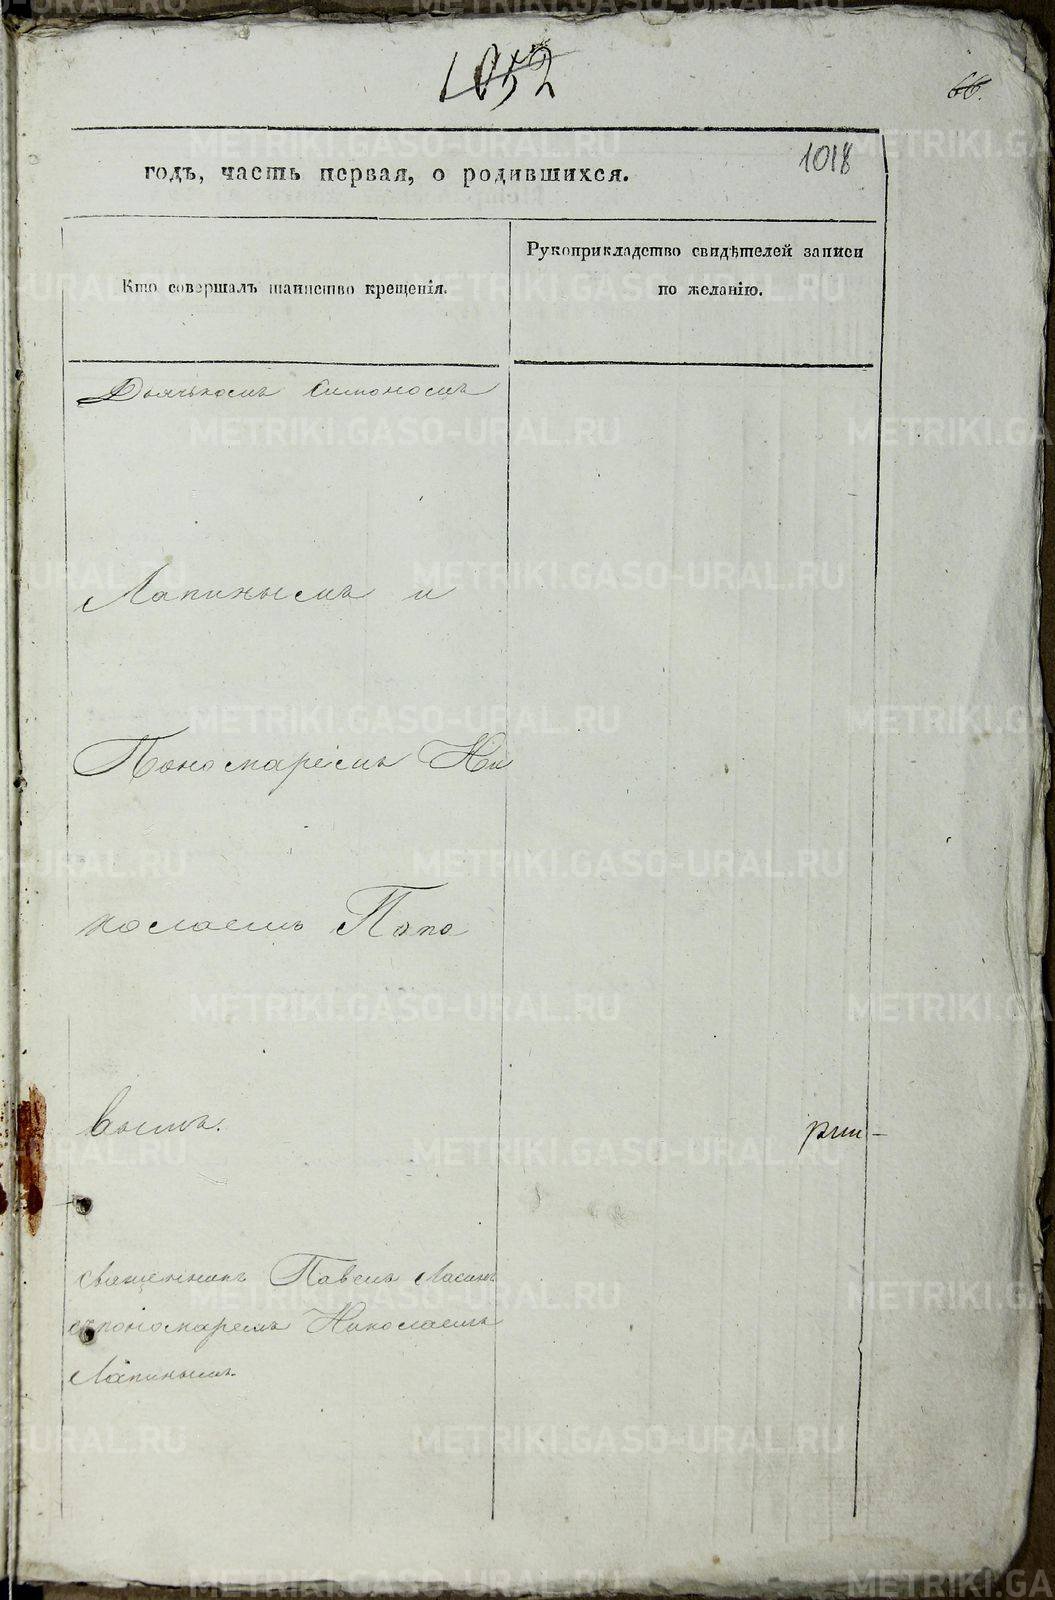 1052
66.
1018
годъ, часть первая, о родившихся.
Кто совершалъ таинство крещенія.
Рукоприкладство свидѣтелей записи
по желанію.
Дьячькомъ Симономъ
Лапинымъ и
Пономаремъ Ни
колаемъ Попо
вымъ.
священникъ Павелъ
съ пономаремъ Николаемъ
Лапинымъ.
METRIKI.GASO-URAL.RU